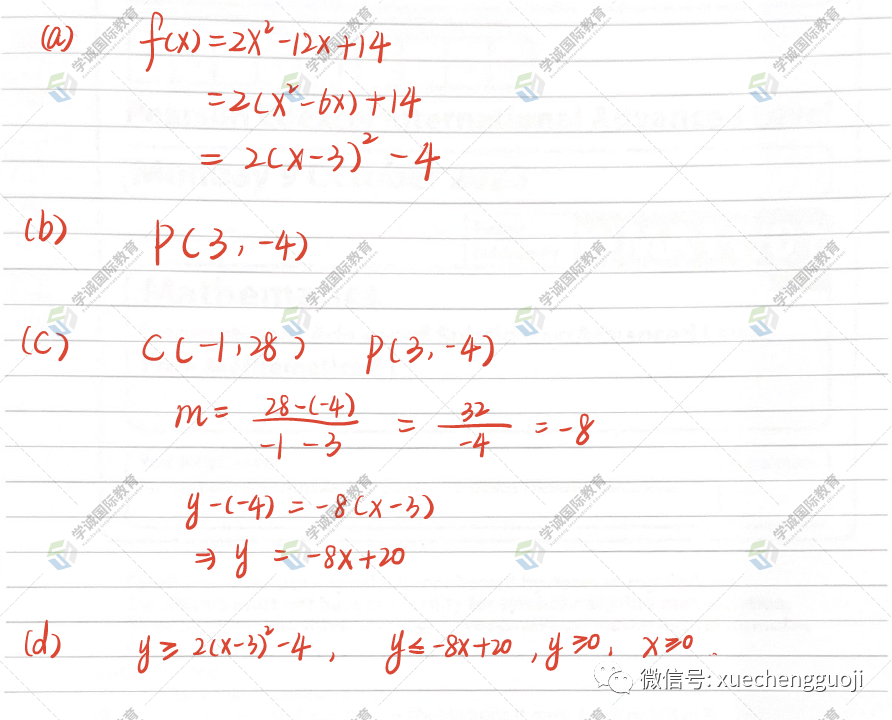 (a) f(x)=2x²-12x+14
=2(x²-6x)+14
= 2(x-3)² -4
(b) P(3, -4)
(c) C(-1,28) P(3,-4)
m= \frac{28-(-4)}{-1-3} = \frac{32}{-4} = -8
y-(-4) = -8(x-3)
⇒ y = -8x+20
(d) y≥ 2(x-3)²-4, y≤-8x+20, y≥0, x≥0.
微信号: xuechengguoji
学诚国际教育